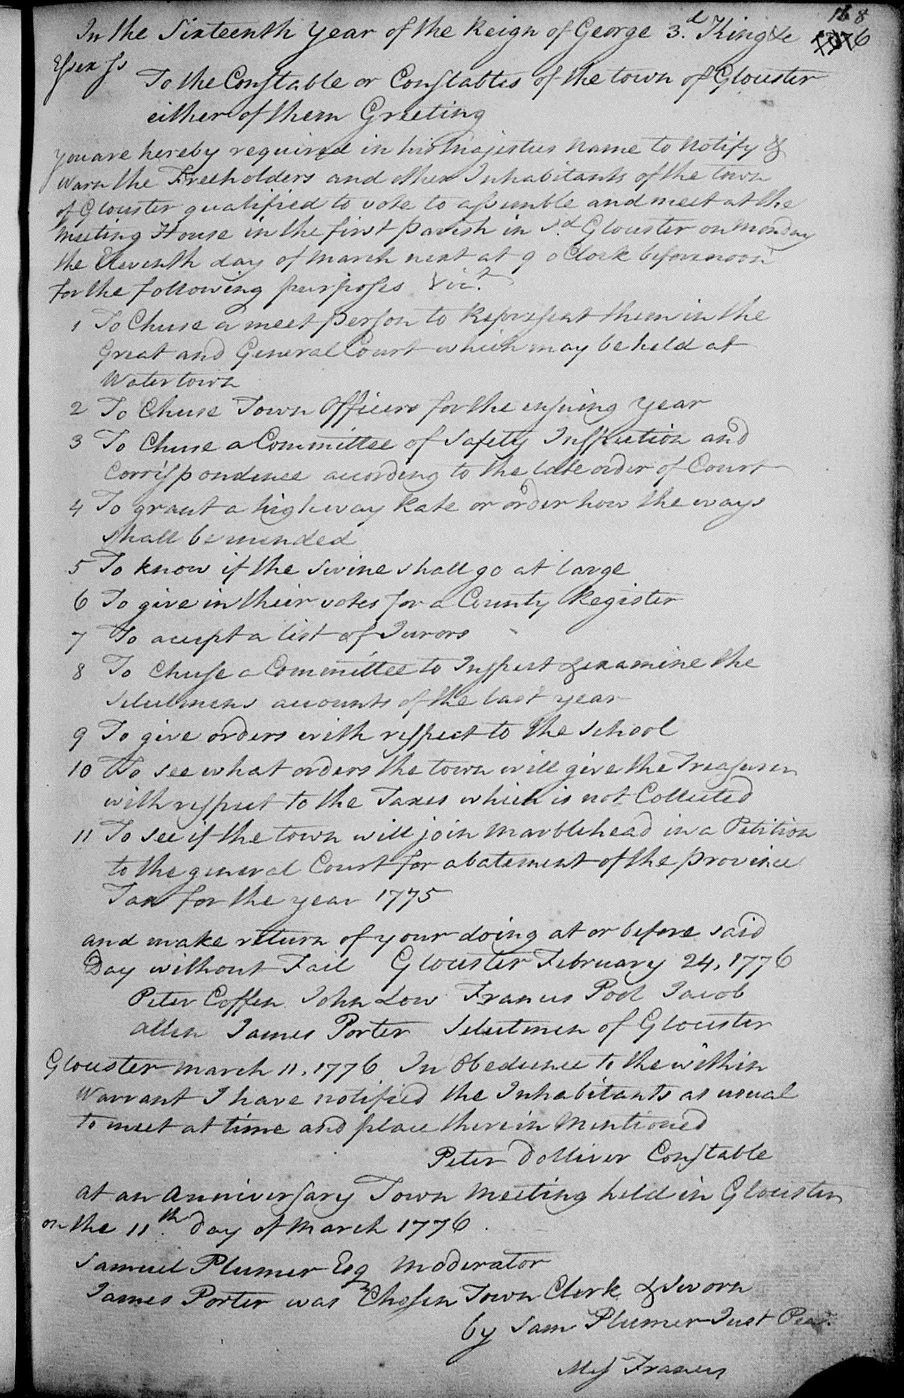 168
In the Sixteenth Year of the Reign of George 3.d King &c 1776
Essex ss
To the Constable or Constables of the town of Glouster
either of them Greeting
you are hereby required in his majesties name to notify &
warn the Freeholders and other Inhabitants of the town
of Glouster qualified to vote to assemble and meet at the
meeting House in the first parish in sd. Glouster on monday
the Eleventh day of march next at 9 oClock beforenoon
for the following purposes Viz.t
1 To Chuse a meet person to Represent them in the
Great and General Court which may be held at
Watertown
2 To Chuse Town Officers for the ensuing year
3 To Chuse a Committee of Safety Inspection and
Corrispondence according to the late order of Court
4 To grant a highway Rate or order how the ways
shall be mended
5 To know if the Swine shall go at large
6 To give in their votes for a County Register
7 To accept a list of Jurors
8 To Chuse a Committee to Inspect & examine the
Selectmens accounts of the last year
9 To give orders with respect to the School
10 To see what orders the town will give the Treasurer
with respect to the Taxes which is not Collected
11 To see if the town will join marblehead in a Petition
to the general Court for abatement of the province
Tax for the year 1775
and make return of your doing at or before said
Day without Fail Glouster February 24, 1776
Peter Coffen John Low Francis Pool Jacob
allen James Porter Selectmen of Glouster
Glouster march 11, 1776 In Obedience to the within
warrant I have notified the Inhabitants as usual
to meet at time and place therein mentioned
Peter Dolliver Constable
at an anniversary Town meeting held in Glouster
on the 11th day of march 1776
Samuel Plumer Esq moderator
James Porter was Chosen Town Clerk & Sworn
by Sam Plumer Just Peac.
Mess Francis